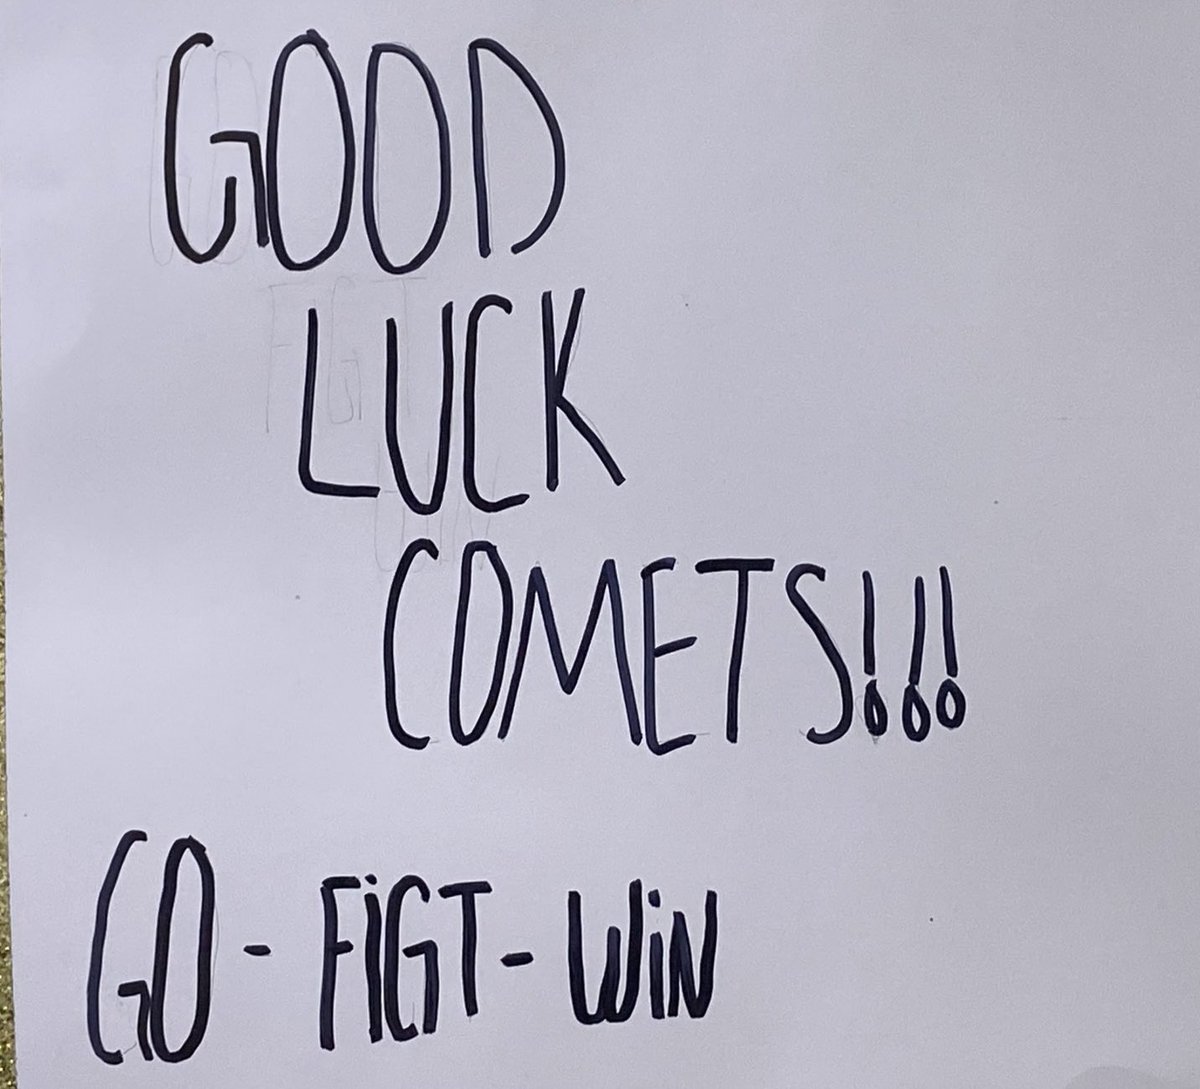 GOOD
LUCK
COMETS!!!
GO - FiGT - WiN